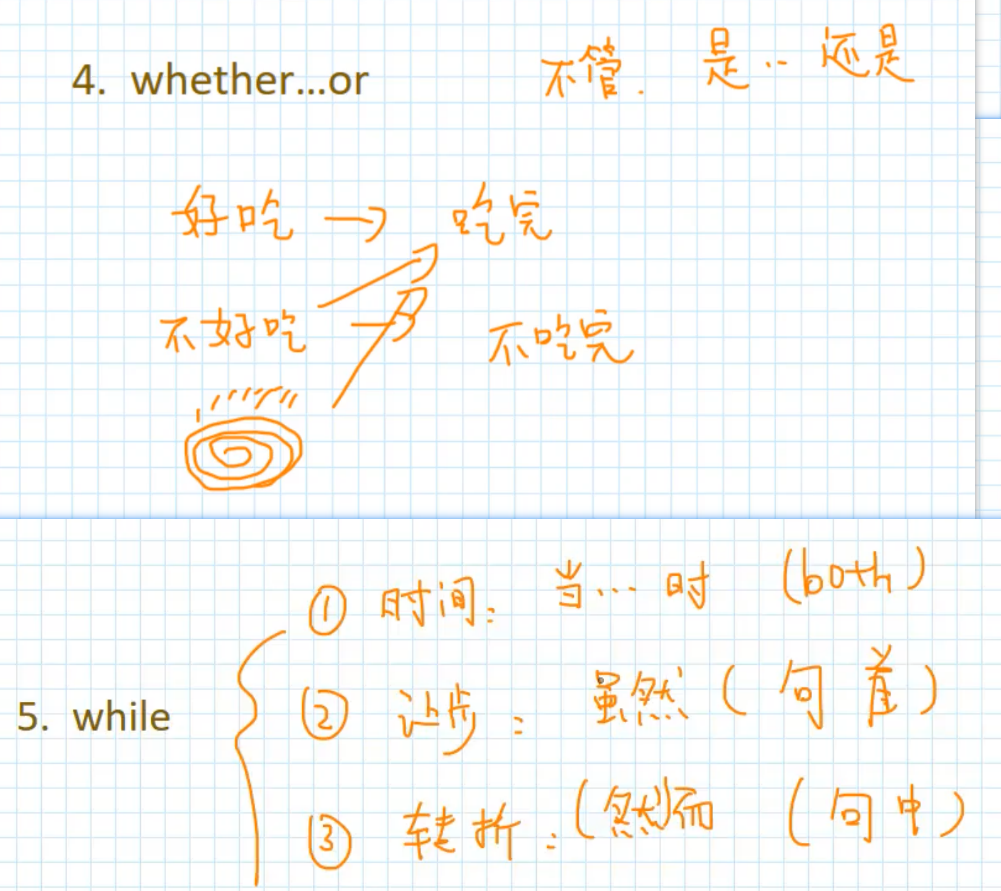 4. whether...or 不管. 是.. 还是
好吃 → 吃完
不好吃 → 不吃完
5. while
① 时间: 当... 时 (both)
② 让步: 虽然 (句首)
③ 转折: (然)而 (句中)